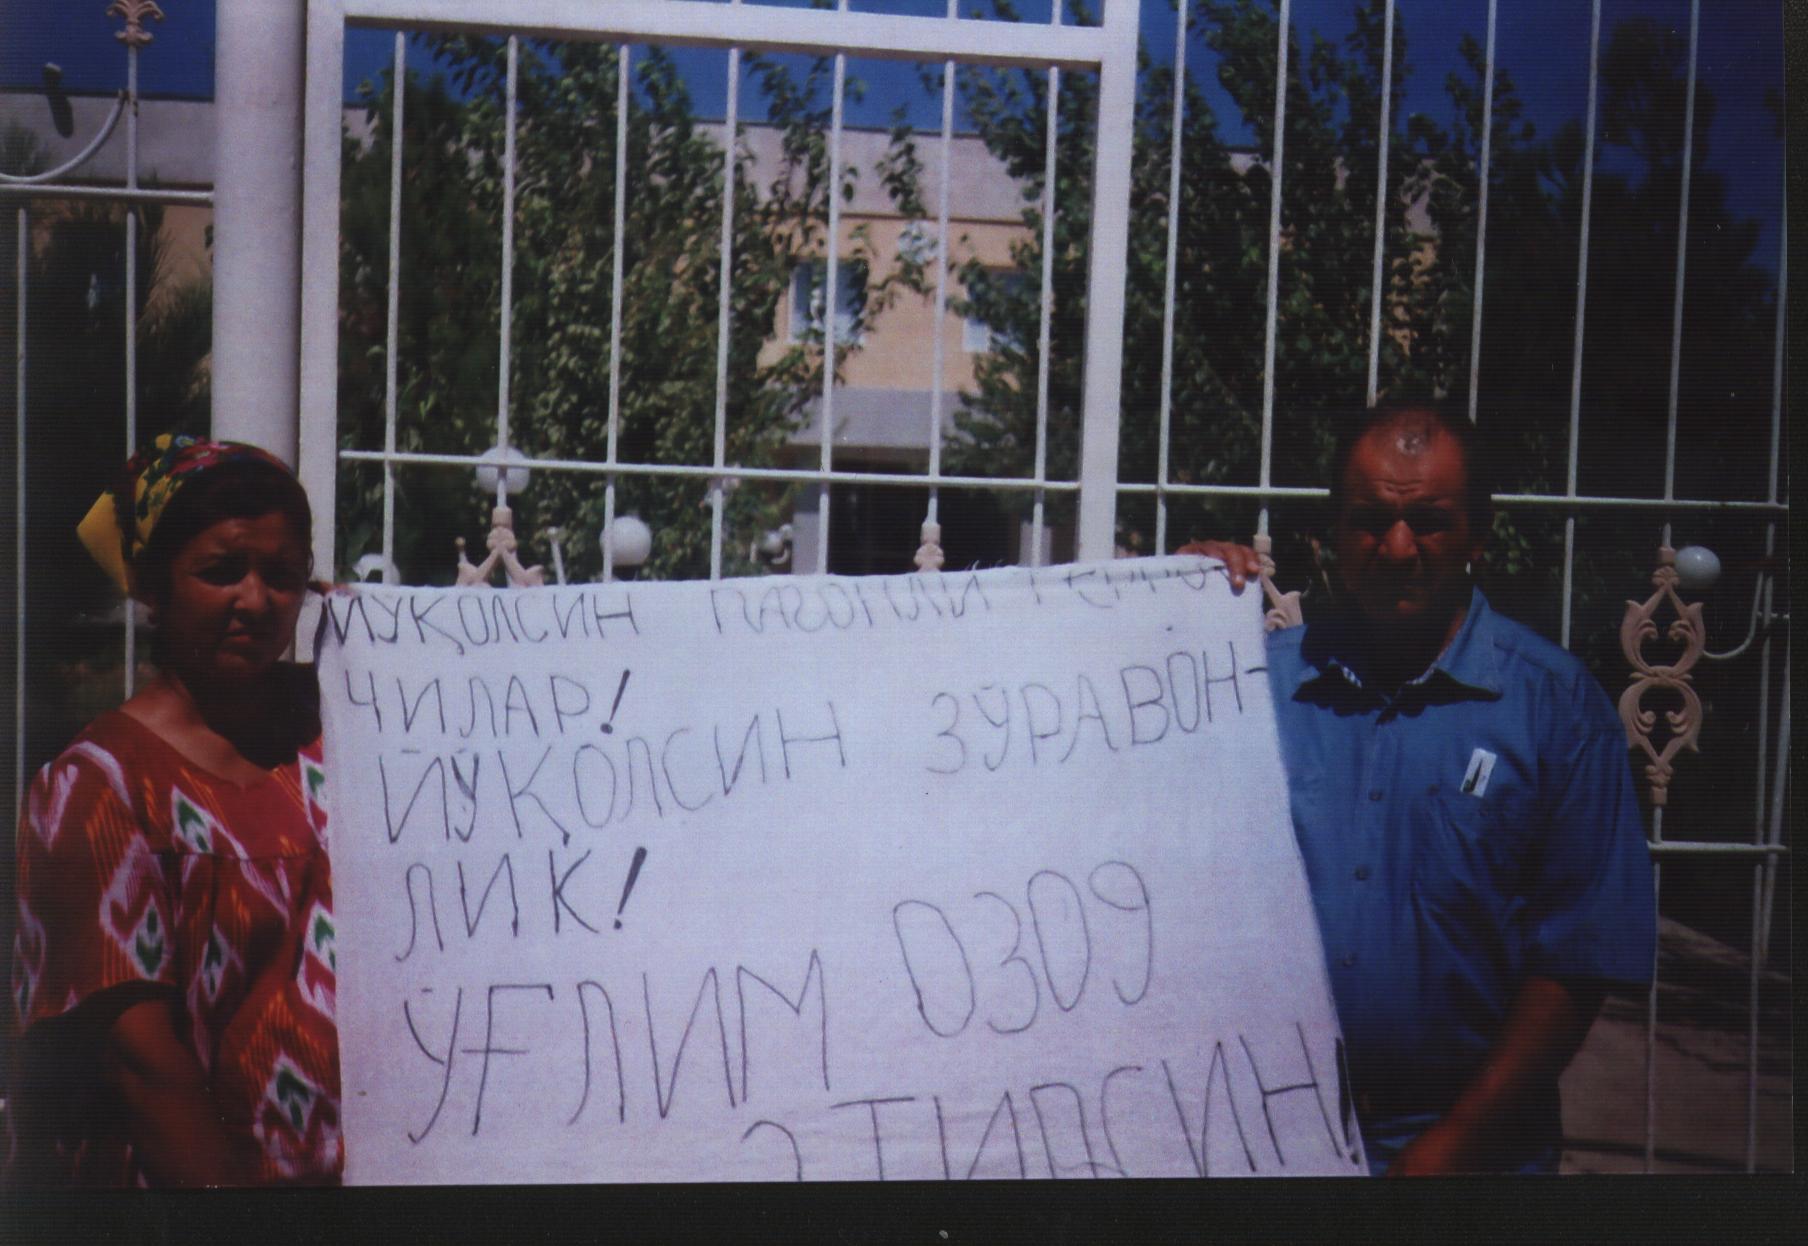 ЙЎҚОЛСИН ПАГОНЛИ
ЧИЛАР!
ЙЎҚОЛСИН ЗЎРАВОН-
ЛИК!
ЎҒЛИМ ОЗОД
ЭТИЛСИН!